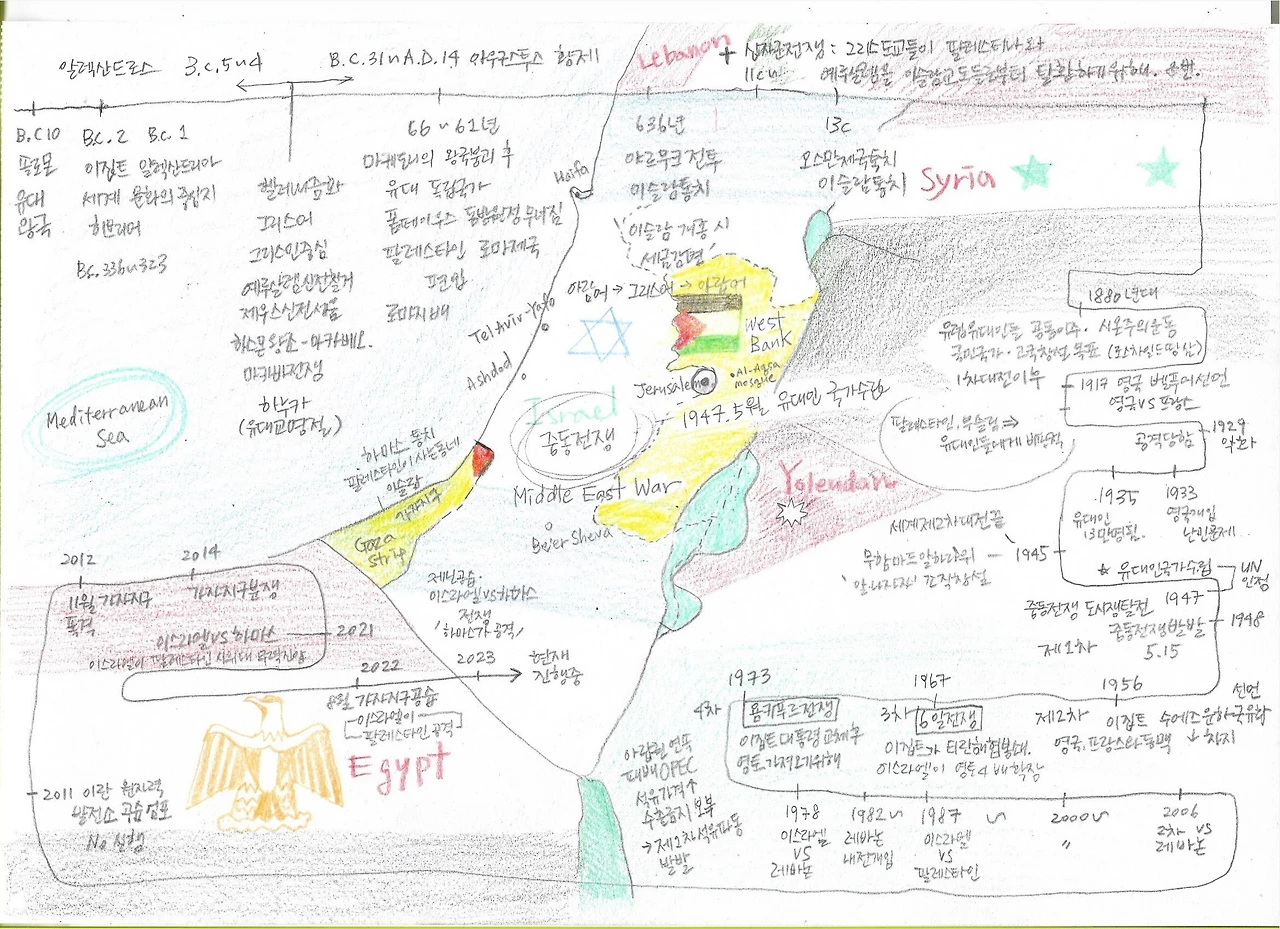 알렉산드로스 B.C.5~4
B.C.31~A.D.14 아우구스투스 황제
Lebanon
+ 십자군전쟁 : 그리스도교들이 팔레스티나와
11c~ 예루살렘을 이슬람교도들로부터 탈환하기위해. 8번.
B.C10
솔로몬
유대
왕국
B.C.2 B.C.1
이집트 알렉산드리아
세계 문화의 중심지
히브리어
B.C.336~323
헬레니즘화
그리스어
그리스인중심
예루살렘신전철거
제우스신전세움
하스몬왕조-마카베오.
마카바전쟁
하누카
(유대교명절)
66~61년
마케도니의 왕국붕괴 후
유대 독립국가
폼페이우스 동방원정 무너짐
팔레스타인 로마제국
편입
로마지배
Haifa
636년
야르무크전투
이슬람통치
이슬람 개종 시
세금감면
아람어→그리스어→아랍어
13c
오스만제국통치
이슬람통치
Syria
Tel Aviv-Yafo
Ashdod
West
Bank
Jerusalem
Al-Aqsa
mosque
Israel
중동전쟁
Middle East War
Be'er Sheva
1947.5월 유대인 국가수립
Mediterranean
Sea
하마스 통치
팔레스타인이 사는동네
이슬람
가자지구
Gaza
strip
Yolendan
1880년대
유럽유대인들 공동이주. 시온주의운동
국민국가·고국창설 목표 (로스차일드땅삼)
1차대전이후
1917 영국 벨푸어선언
영국VS프랑스
팔레스타인, 무슬림⇒
유대인들에게 비판적
공격당함
1929
악화
1935
유대인
13만명됨.
1933
영국개입
난민문제
세계제2차대전끝
무함마드알하다위
'알나자자' 간작창설
1945
★ 유대인국가수립
UN
인정
1947
중동전쟁 도시쟁탈전
중동전쟁발발
1948
제1차 5.15
1956
제2차 이집트 수에즈운하국유화
선언
영국, 프랑스와동맹 ↓ 차지
1967
3차 6일전쟁
이집트가 티란해협봉쇄.
이스라엘이 영토4배확장
1973
4차 욤키푸르전쟁
이집트대통령교체후
영토가져오기위해
아랍권연폭
패배OPEC
석유가격↑
수출금지보복
→제1차석유파동
발발
1978
이스라엘
VS
레바논
1982~
레바논
내전개입
1987 ~
이스라엘
VS
팔레스타인
2000~
〃
2006
2차 VS
레바논
2011 이란 원자력
발전소 공습선포
No 실행
2012
11월 가자지구
폭격
2014
가자지구분쟁
이스라엘VS하마스
이스라엘이 팔레스타인 시위대 무력진압
2021
2022
8월 가자지구공습
이스라엘이
팔레스타인 공격
2023
제닌공습.
이스라엘VS하마스
전쟁
'하마스가 공격'
현재
진행중
Egypt